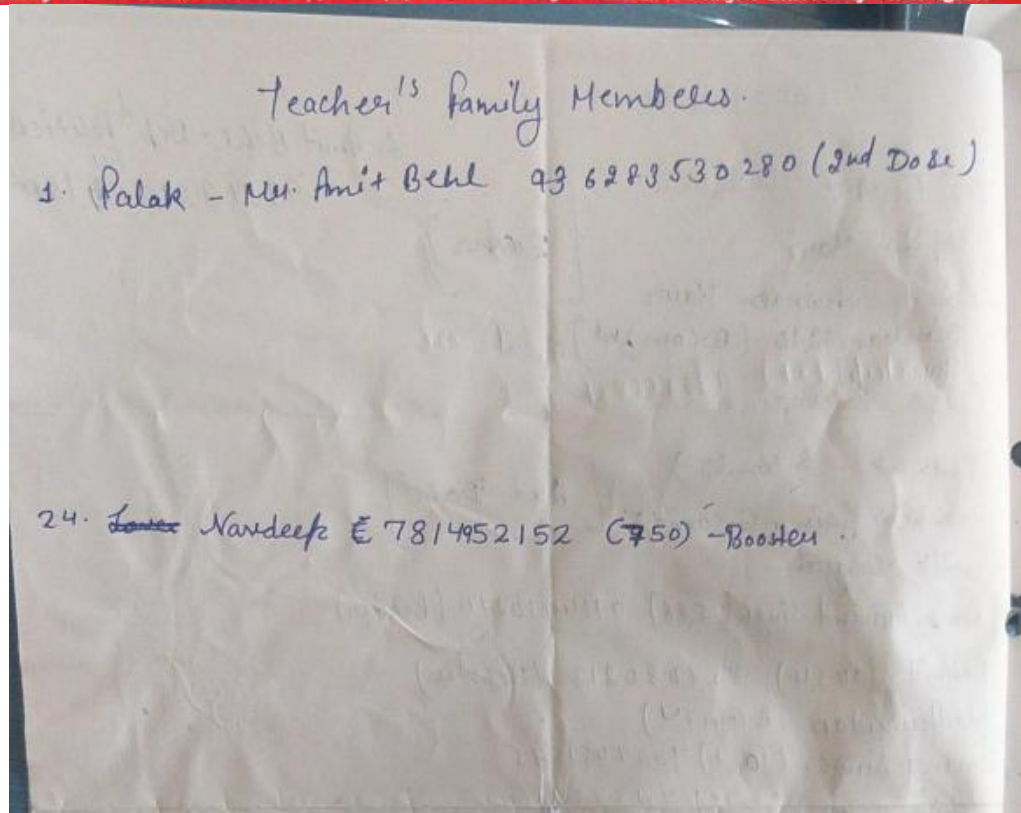 Teacher's family Members.
1. Palak - Mr. Amit Behl 93 6283530280 (2nd Dose)
24. Navdeep E 7814952152 (750) - Booster.